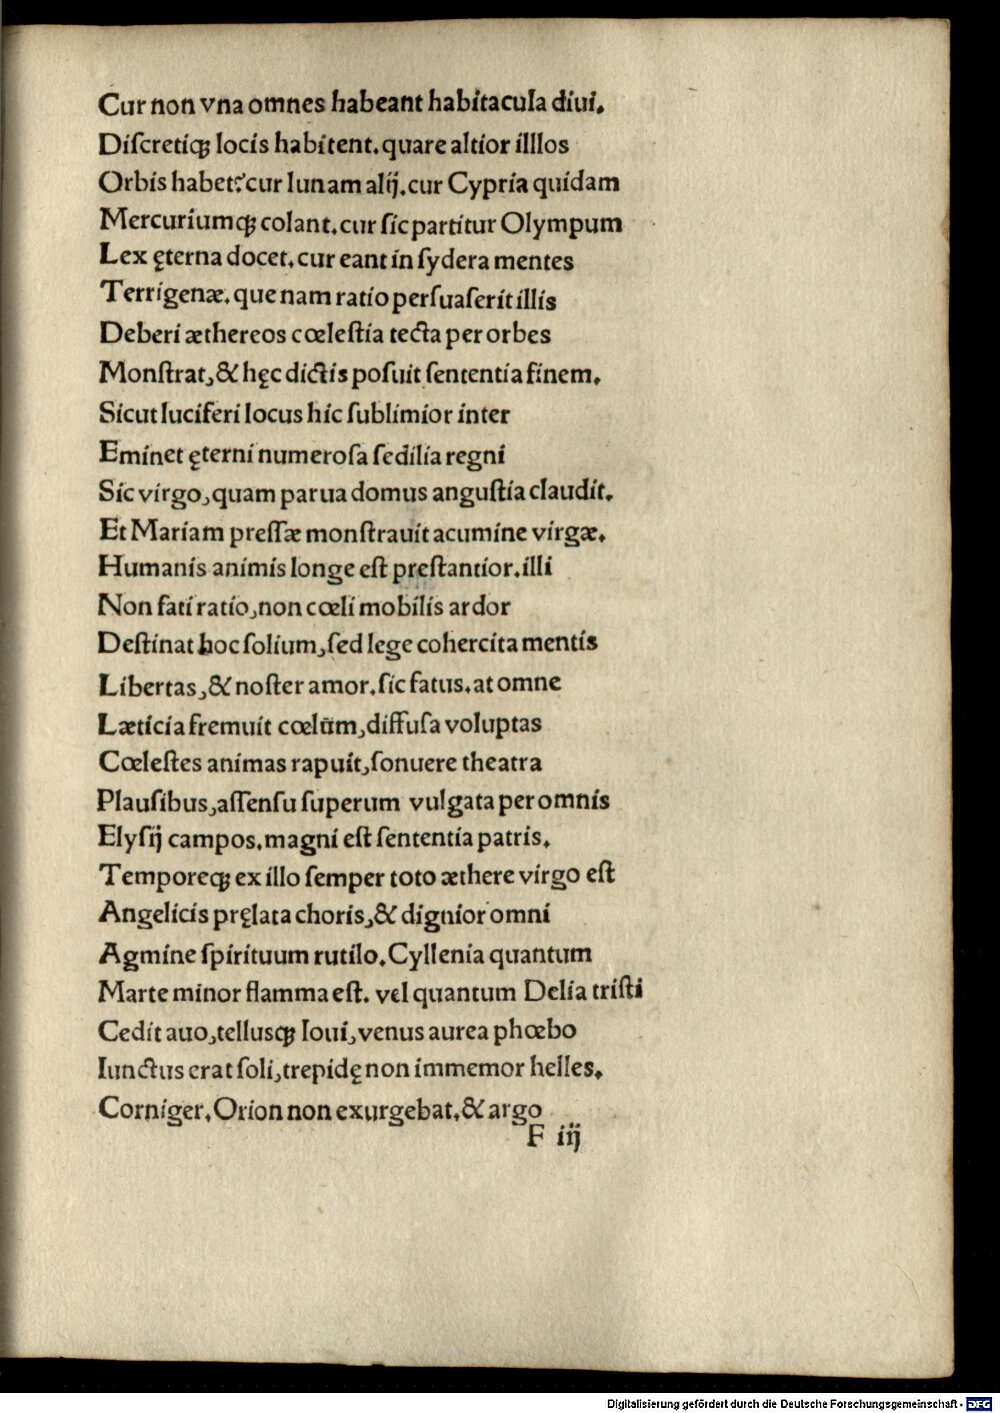 Cur non vna omnes habeant habitacula diui.
Diſcretiqꝫ locis habitent. quare altior illlos
Orbis habet? cur lunam alij. cur Cypria quidam
Mercuriumqꝫ colant. cur ſic partitur Olympum
Lex ęterna docet. cur eant in ſydera mentes
Terrigenæ. que nam ratio perſuaſerit illis
Deberi æthereos cœleſtia tecta per orbes
Monſtrat, & hęc dictis poſuit ſententia finem.
Sicut luciferi locus hic ſublimior inter
Eminet ęterni numeroſa ſedilia regni
Sic virgo, quam parua domus anguſtia claudit.
Et Mariam preſſæ monſtrauit acumine virgæ.
Humanis animis longe eſt preſtantior. illi
Non fati ratio, non cœli mobilis ardor
Deſtinat hoc ſolium, ſed lege cohercita mentis
Libertas, & noſter amor. ſic fatus. at omne
Læticia fremuit cœlūm, diffuſa voluptas
Cœleſtes animas rapuit, ſonuere theatra
Plauſibus, aſſenſu ſuperum vulgata per omnis
Elyſij campos. magni eſt ſententia patris.
Temporeqꝫ ex illo ſemper toto æthere virgo eſt
Angelicis pręlata choris, & dignior omni
Agmine ſpirituum rutilo. Cyllenia quantum
Marte minor flamma eſt. vel quantum Delia triſti
Cedit auo, tellusqꝫ Ioui, venus aurea phœbo
Iunctus erat ſoli, trepidę non immemor helles.
Corniger. Orion non exurgebat. & argo
F iij
Digitalisierung gefördert durch die Deutsche Forschungsgemeinschaft - DFG